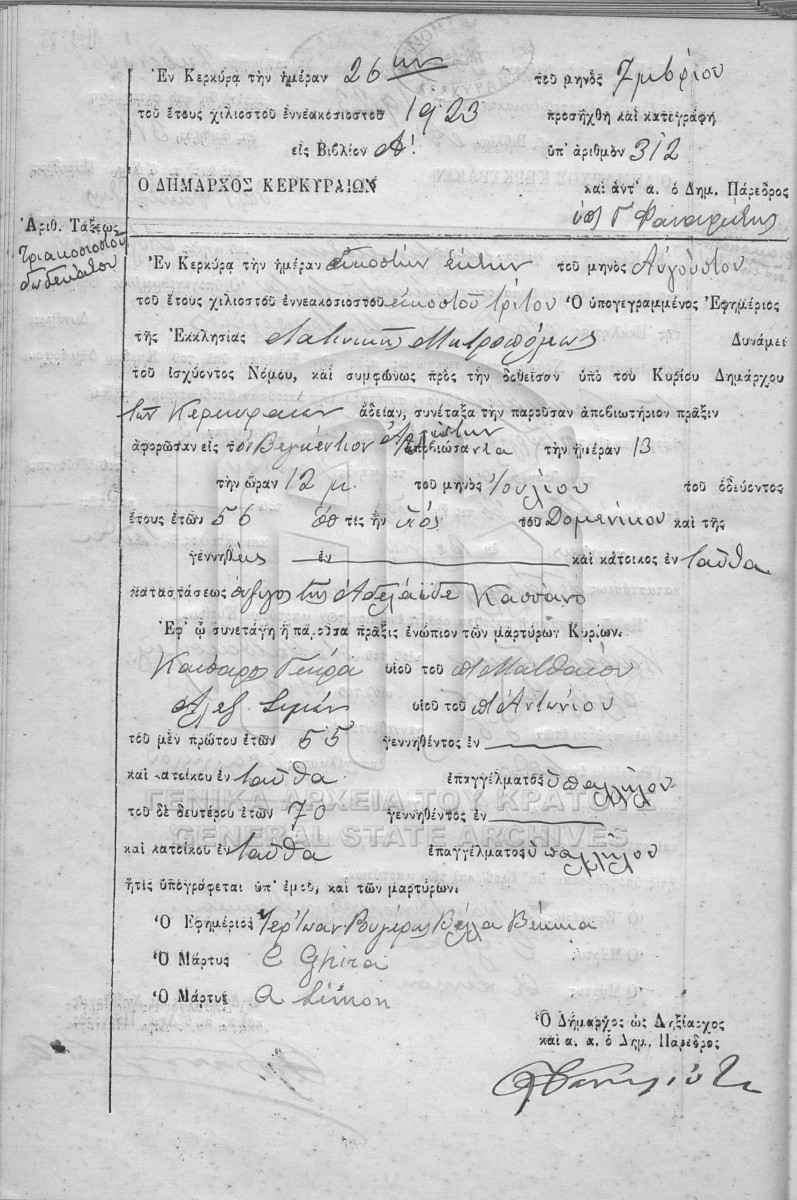 Ἐν Κερκύρᾳ τὴν ἡμέραν 26ην τοῦ μηνὸς 7μβρίου
τοῦ ἔτους χιλιοστοῦ ἐννεακοσιοστοῦ 1923 προσήχθη καὶ κατεγράφη
εἰς Βιβλίον Α! ὑπ' ἀριθμὸν 312
Ο ΔΗΜΑΡΧΟΣ ΚΕΡΚΥΡΑΙΩΝ καὶ ἀντ' α. ὁ Δημ. Πάρεδρος
Ἀριθ. Τάξεως
Τριακοσιοστοῦ
δωδεκάτου
Ἐν Κερκύρᾳ τὴν ἡμέραν εἰκοστὴν ἕκτην τοῦ μηνὸς Αὐγούστου
τοῦ ἔτους χιλιοστοῦ ἐννεακοσιοστοῦ εἰκοστοῦ τρίτου Ὁ ὑπογεγραμμένος Ἐφημέριος
τῆς Ἐκκλησίας Λατινικῆς Μητροπόλεως Δυνάμει
τοῦ ἰσχύοντος Νόμου, καὶ συμφώνως πρὸς τὴν δοθεῖσαν ὑπὸ τοῦ Κυρίου Δημάρχου
τῶν Κερκυραίων ἀδείαν, συνέταξα τὴν παροῦσαν ἀποβιωτήριον πρᾶξιν
ἀφορῶσαν εἰς τὸν Βιγκέντιον ἀποβιώσαντα τὴν ἡμέραν 13
τὴν ὥραν 12 μ. τοῦ μηνὸς Ἰουλίου τοῦ ὁδεύοντος
ἔτους ἐτῶν 56 ὅστις ἦν υἱὸς τοῦ Δομενίκου καὶ τῆς
γεννηθεὶς ἐν καὶ κάτοικος ἐνταῦθα
καταστάσεως σύζυγος τῆς Ἀδελαΐδε Κασσάνο
Ἐφ' ᾧ συνετάγη ἡ παροῦσα πρᾶξις ἐνώπιον τῶν μαρτύρων Κυρίων.
Καίσαρος Γκύρα υἱοῦ τοῦ π Ματθαίου
Ἀλεξ Σιμὸν υἱοῦ τοῦ π Ἀντωνίου
τοῦ μὲν πρώτου ἐτῶν 55 γεννηθέντος ἐν
καὶ κατοίκου ἐνταῦθα ἐπαγγέλματος ὑπαλλήλου
ΓΕΝΙΚΑ ΑΡΧΕΙΑ ΤΟΥ ΚΡΑΤΟΥΣ
τοῦ δὲ δευτέρου ἐτῶν 70 γεννηθέντος ἐν
GENERAL STATE ARCHIVES
καὶ κατοίκου ἐνταῦθα ἐπαγγέλματος ὑπαλλήλου
ἥτις ὑπογράφεται ὑπ' ἐμοῦ, καὶ τῶν μαρτύρων.
Ὁ Ἐφημέριος Ἱερ Ἰωαν Βέλλα
Ὁ Μάρτυς C Ghira
Ὁ Μάρτυς A Simon
Ὁ Δήμαρχος ὡς Ληξίαρχος
καὶ α. α. ὁ Δημ. Πάρεδρος